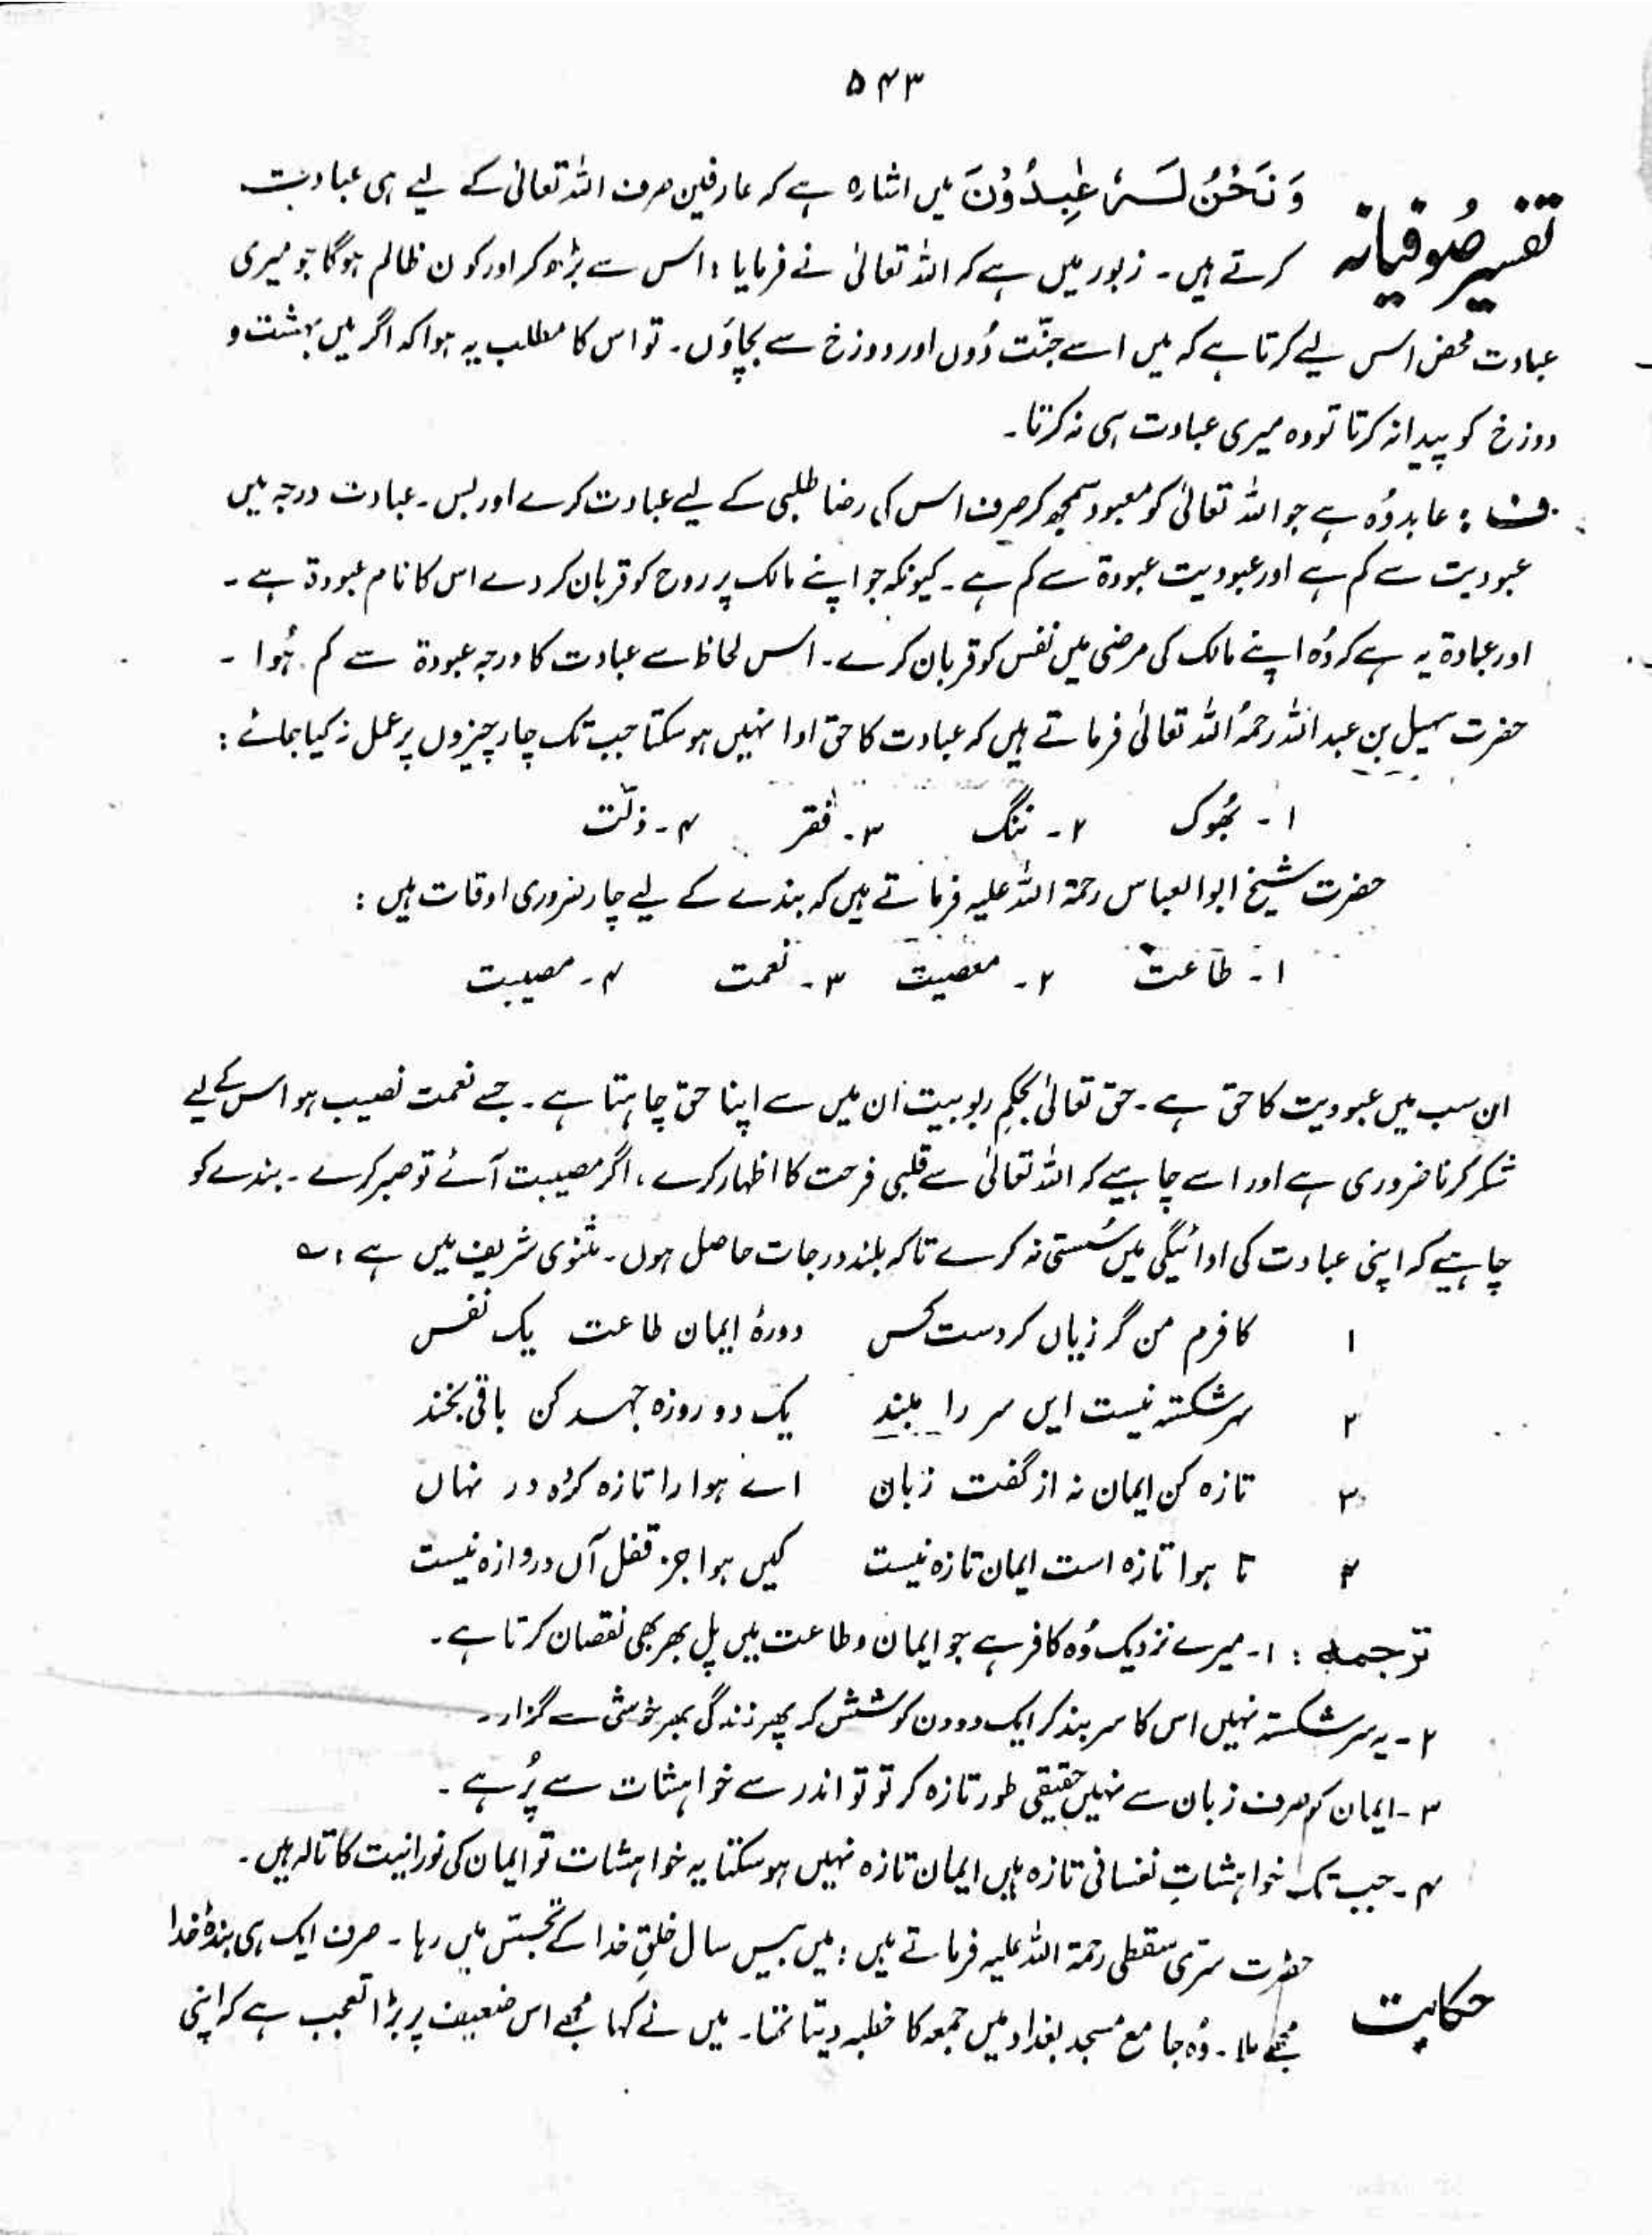 ۵۴۳
تفسیر صُوفیانہ وَ نَحْنُ لَہٗ عٰبِدُوْنَ میں اشارہ ہے کہ عارفین صرف اللہ تعالیٰ کے لیے ہی عبادت
کرتے ہیں۔ زبور میں ہے کہ اللہ تعالیٰ نے فرمایا : اس سے بڑھ کر اور کون ظالم ہوگا جو میری
عبادت محض اس لیے کرتا ہے کہ میں اسے جنّت دُوں اور دوزخ سے بچاؤں۔ تو اس کا مطلب یہ ہوا کہ اگر میں بہشت و
دوزخ کو پیدا نہ کرتا تو وہ میری عبادت ہی نہ کرتا۔
ف : عابد وُہ ہے جو اللہ تعالیٰ کو معبود سمجھ کر صرف اس کی رضا طلبی کے لیے عبادت کرے اور بس۔ عبادت درجہ میں
عبودیت سے کم ہے اور عبودیت عبودۃ سے کم ہے۔ کیونکہ جو اپنے مالک پر روح کو قربان کردے اس کا نام عبودۃ ہے۔
اور عبادۃ یہ ہے کہ وُہ اپنے مالک کی مرضی میں نفس کو قربان کرے۔ اس لحاظ سے عبادت کا درجہ عبودۃ سے کم ہُوا۔
حضرت سہیل بن عبداللہ رحمہُ اللہ تعالیٰ فرماتے ہیں کہ عبادت کا حق ادا نہیں ہوسکتا جب تک چار چیزوں پر عمل نہ کیا جائے :
۱ - بھُوک ۲ - ننگ ۳ - فقر ۴ - ذلّت
حضرت شیخ ابوالعباس رحمۃ اللہ علیہ فرماتے ہیں کہ بندے کے لیے چار ضروری اوقات ہیں :
۱ - طاعت ۲ - معصیت ۳ - نعمت ۴ - مصیبت
ان سب میں عبودیت کا حق ہے۔ حق تعالیٰ بحکمِ ربوبیت ان میں سے اپنا حق چاہتا ہے۔ جسے نعمت نصیب ہو اس کے لیے
شکر کرنا ضروری ہے اور اسے چاہیے کہ اللہ تعالیٰ سے قلبی فرحت کا اظہار کرے، اگر مصیبت آئے تو صبر کرے۔ بندے کو
چاہیے کہ اپنی عبادت کی ادائیگی میں سُستی نہ کرے تاکہ بلند درجات حاصل ہوں۔ مثنوی شریف میں ہے : ؎
۱ کافرم من گر زیاں کردست کس دورۂ ایمان طاعت یک نفس
۲ سر شکستہ نیست ایں سر را مبند یک دو روزہ جہد کن باقی بخند
۳ تازہ کن ایمان نہ از گفت زبان اے ہوا را تازہ کرْدہ در نہاں
۴ تا ہوا تازہ است ایمان تازہ نیست کیں ہوا جز قفل آں دروازہ نیست
ترجمہ : ۱ - میرے نزدیک وُہ کافر ہے جو ایمان و طاعت میں پل بھر بھی نقصان کرتا ہے۔
۲ - یہ سر شکستہ نہیں اس کا سر بند کر ایک دو دن کوشش کر پھر زندگی بھر خوشی سے گزار۔
۳ - ایمان کو صرف زبان سے نہیں حقیقی طور تازہ کر تو تو اندر سے خواہشات سے پُر ہے۔
۴ - جب تک خواہشاتِ نفسانی تازہ ہیں ایمان تازہ نہیں ہوسکتا یہ خواہشات تو ایمان کی نورانیت کا تالہ ہیں۔
حکایت حضرت سرّی سقطی رحمۃ اللہ علیہ فرماتے ہیں : میں بیس سال خلقِ خدا کے تجسّس میں رہا۔ صرف ایک ہی بندۂ خدا
مجھے ملا۔ وُہ جامع مسجد بغداد میں جمعہ کا خطبہ دیتا تھا۔ میں نے کہا مجھے اس ضعیف پر بڑا تعجب ہے کہ اپنی